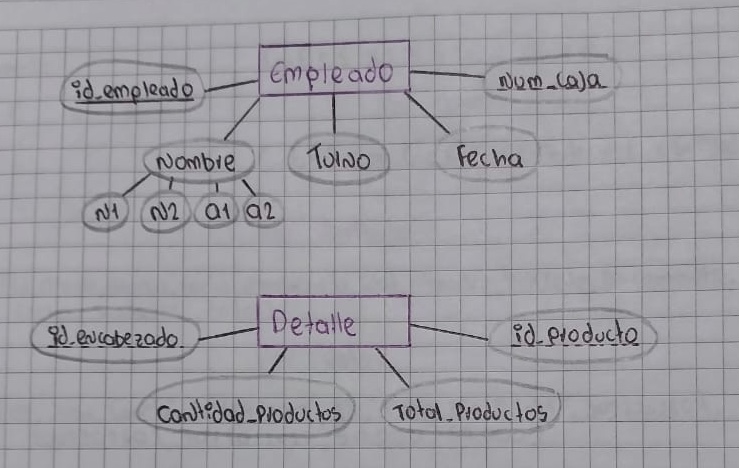 Empleado
id_empleado
Num_caja
Nombre
Turno
Fecha
N1
N2
a1
a2
Detalle
id_encabezado
id_producto
Cantidad_productos
Total_Productos